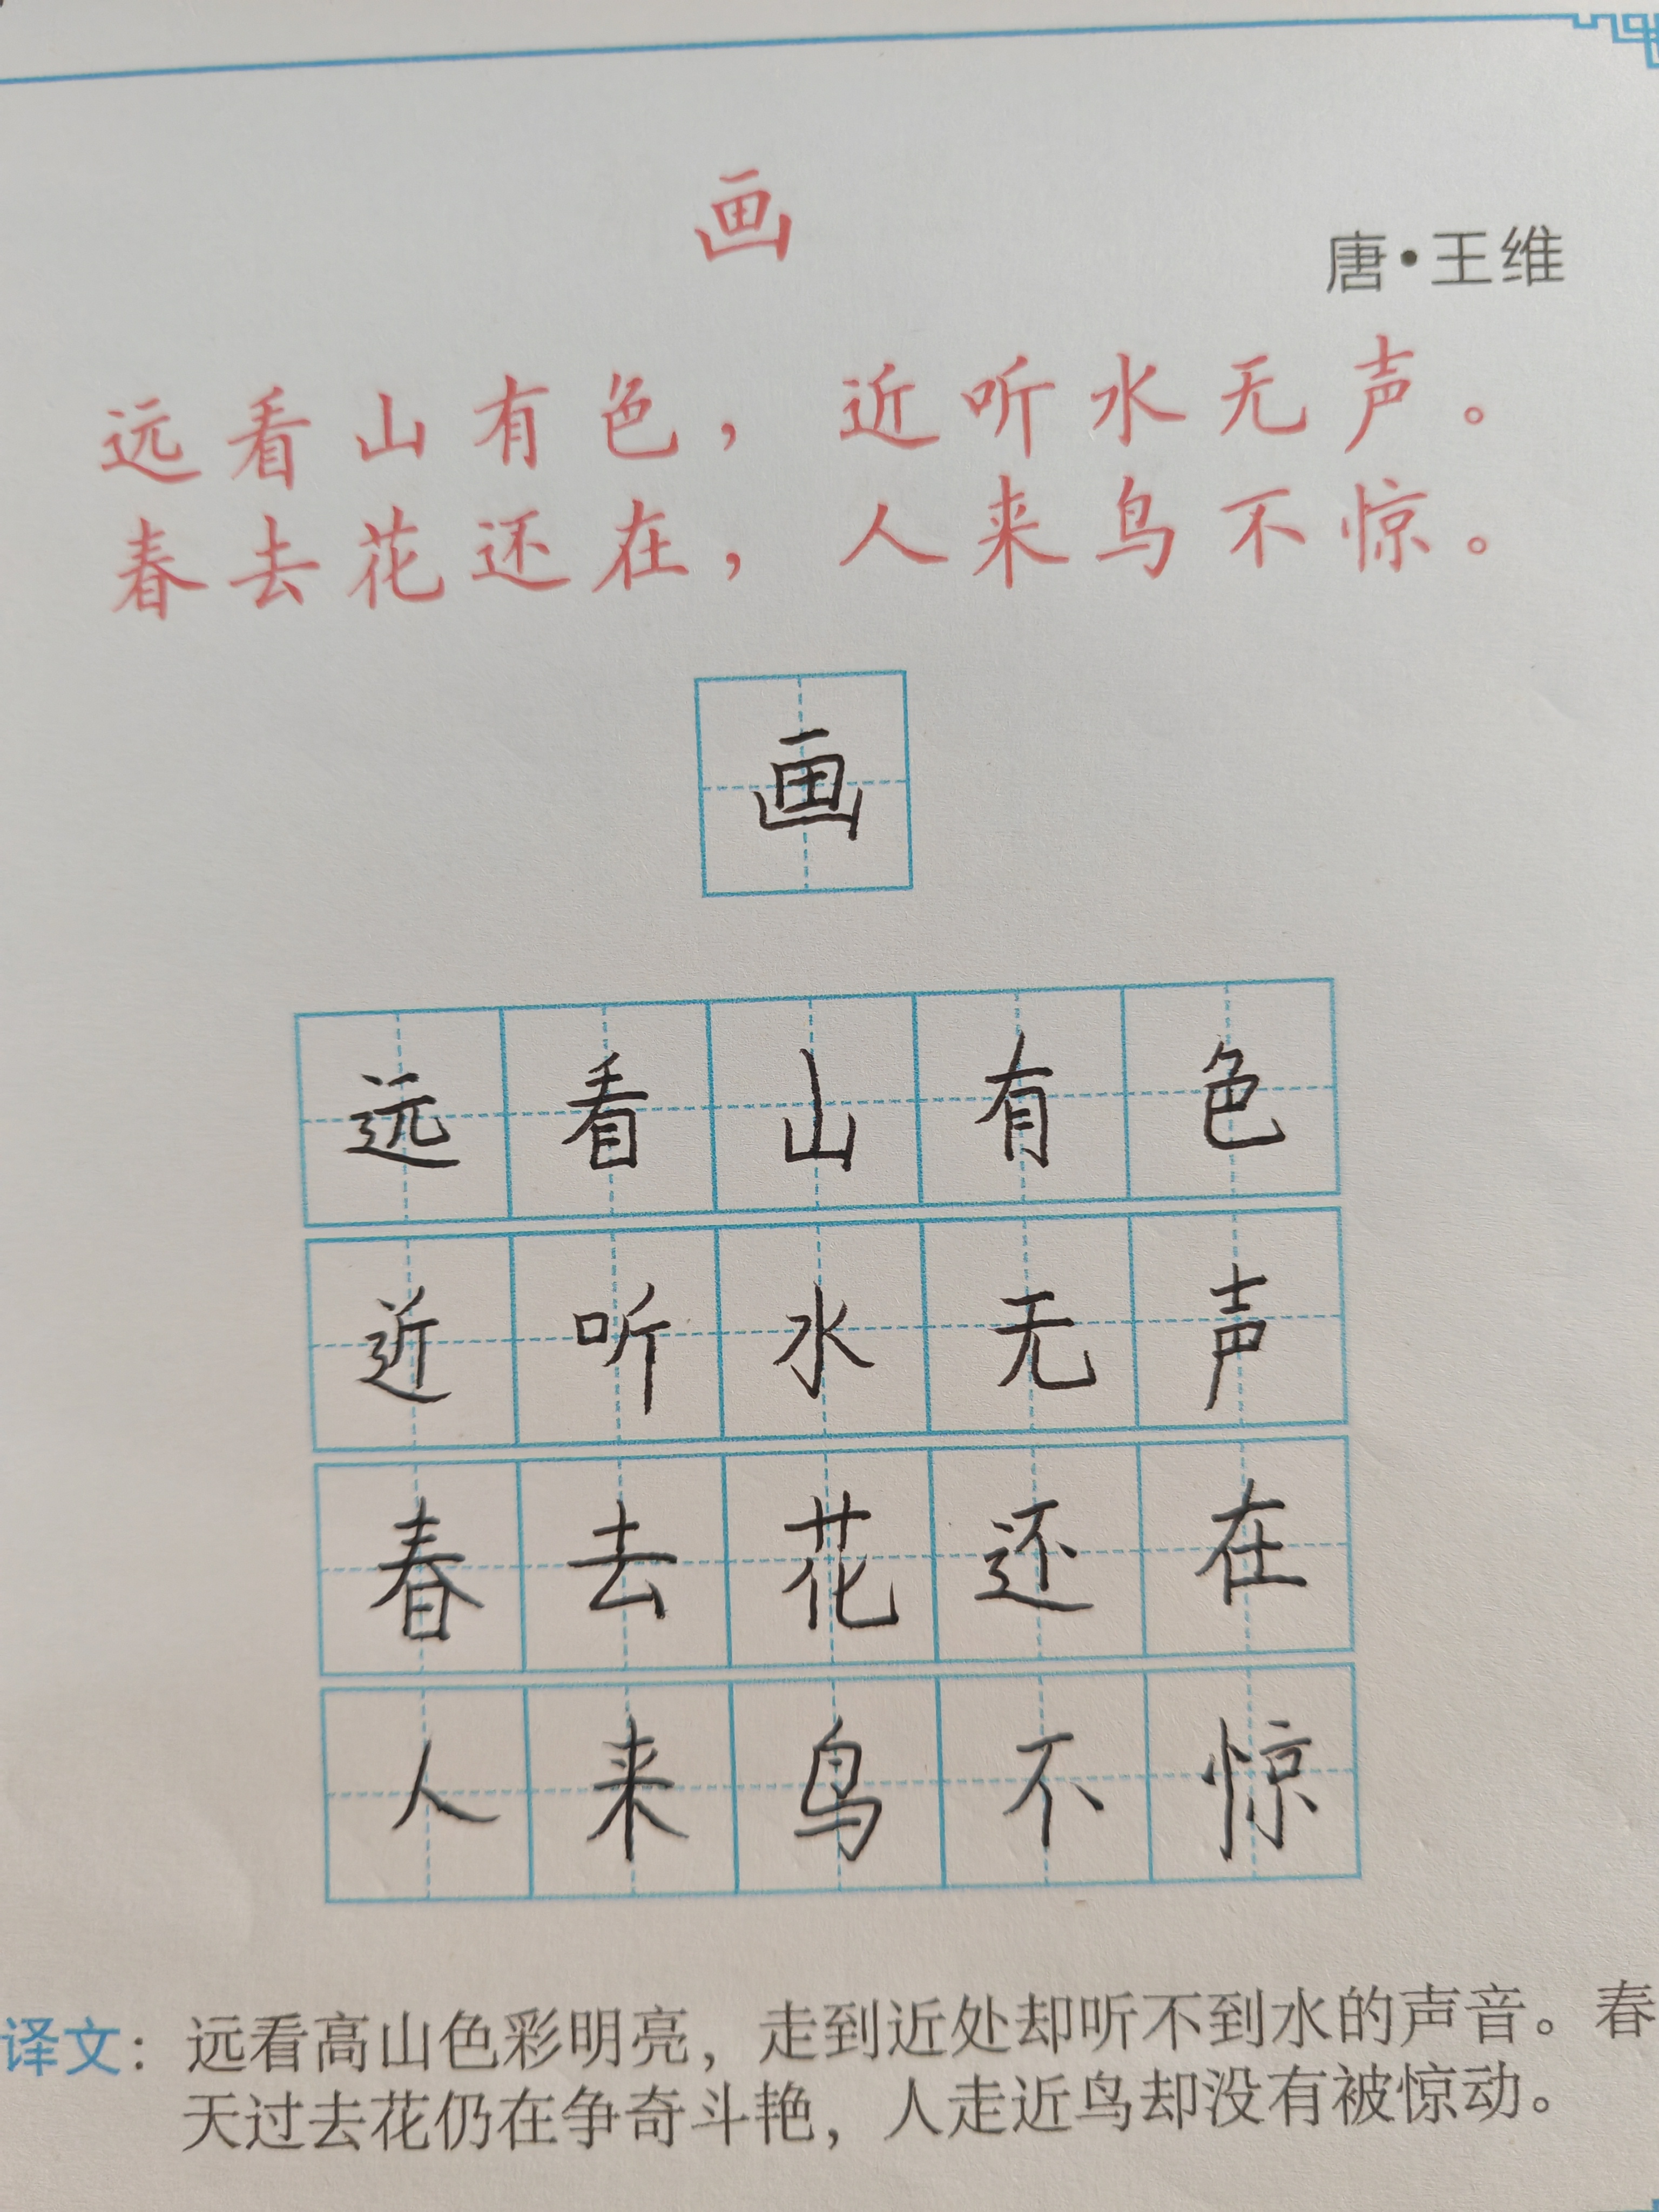 画
唐·王维
远看山有色，近听水无声。
春去花还在，人来鸟不惊。
画
远看山有色
近听水无声
春去花还在
人来鸟不惊
译文：远看高山色彩明亮，走到近处却听不到水的声音。春
天过去花仍在争奇斗艳，人走近鸟却没有被惊动。